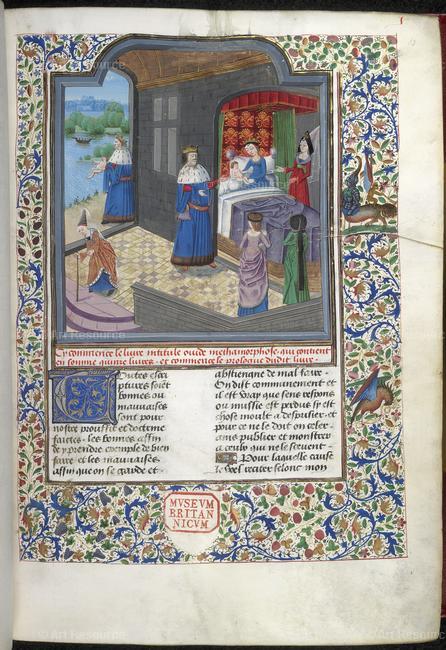 Cy commence le livre intitule ouide methamorphose. qui contient
en somme quinze liures. et commence le prologue dudit liure.
Toutes escri
ptures soiet
bonnes ou
mauuaises
sont pour
nostre prouffit et doctrine
faictes. les bonnes affin
de y prendre exemple de bien
faire et les mauuaises
affin que on se garde et
abstiengne de mal faire.
On dit communement et
il est vray que sens repons
ou mussie est perdus sy est
chose moult a despriser. et
pour ce ne doit on celer
ains publier et monstrer
a ceulx qui ne le seruent.
Pour laquelle cause
Je voel traitier selonc mon
MVSEVM
BRITAN
NICVM
© Art Resource